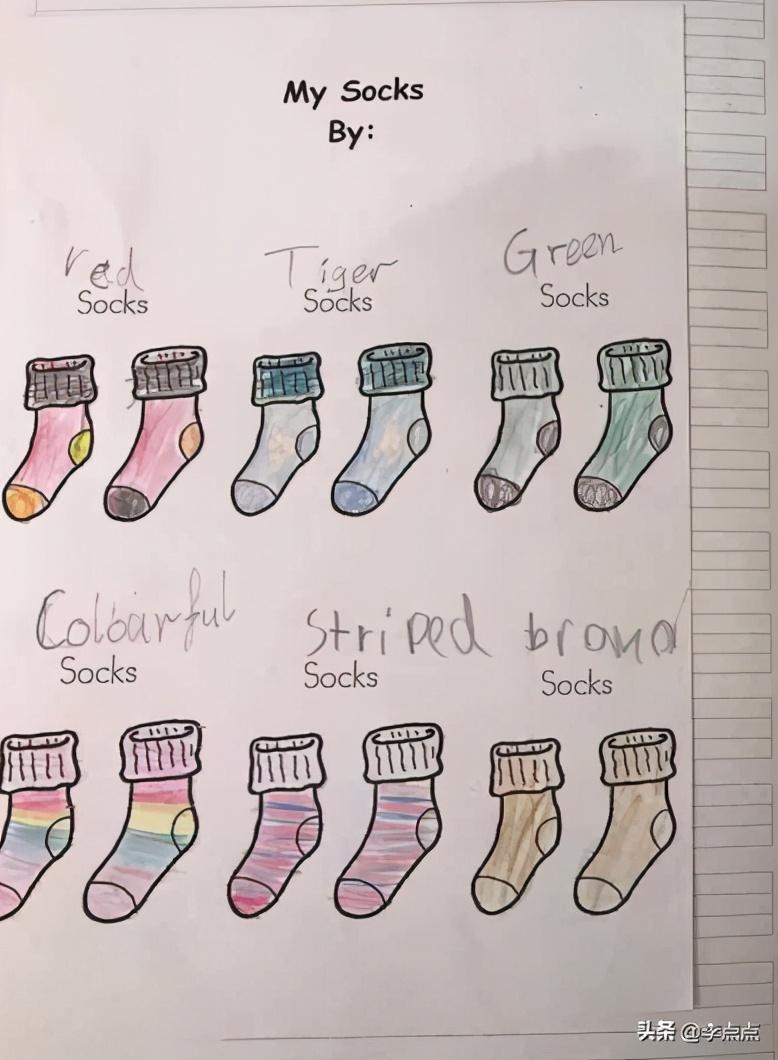 My Socks
By:
red Tiger Green
Socks Socks Socks
Colbarful Striped
Socks Socks Socks
头条 @李点点